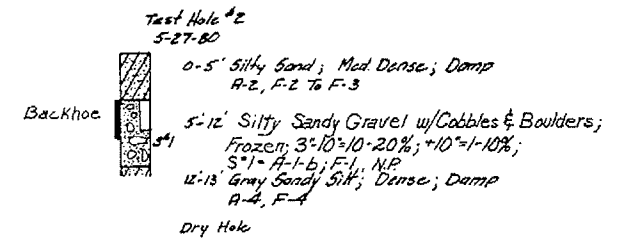 Test Hole #2
5-27-80
0-5' Silty Sand; Med. Dense; Damp
A-2, F-2 To F-3
Backhoe
5'-12' Silty Sandy Gravel w/Cobbles & Boulders;
S#1
Frozen; 3"-10"=10-20%; +10"=1-10%;
S#1= A-1-b; F-1, N.P.
12'-13' Gray Sandy Silt; Dense; Damp
A-4, F-4
Dry Hole